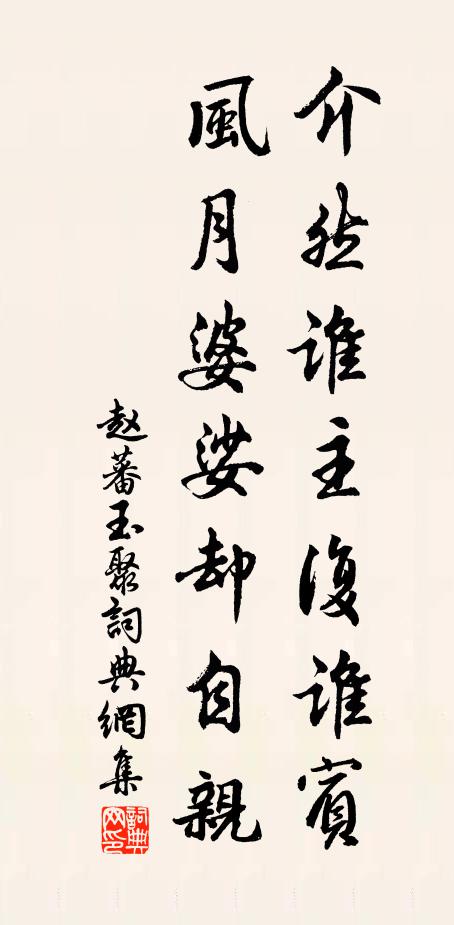 介然谁主復谁賓
風月婆娑却自親
赵蕃玉聚詞典網集
詞典網印